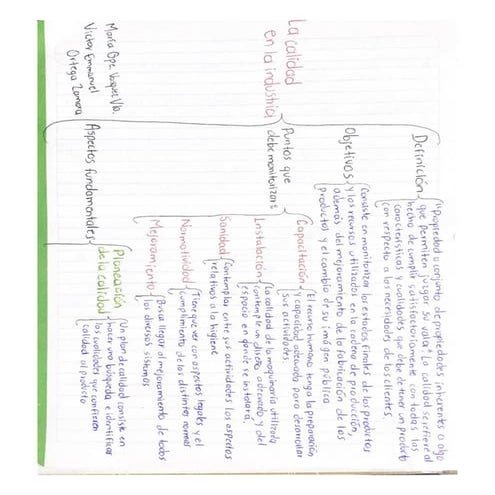 La calidad
en la industria
Definición
"Propiedad o conjunto de propiedades inherentes a algo
que permiten juzgar su valor". La calidad se refiere al
hecho de cumplir satisfactoriamente con todas las
características y cualidades que debe de tener un producto
con respecto a las necesidades de los clientes.
Objetivos
Consiste en monitorizar los estados finales de los productos
y los recursos utilizados en la cadena de producción,
además del mejoramiento de la fabricación de los
productos y el cambio de su imágen pública
Puntos que
debe monitorizar:
Capacitación
El recurso humano tenga la preparación
y capacidad adecuada para desarrollar
sus actividades.
Instalación
La calidad de la maquinaria utilizada
contemple un diseño adecuado y del
espacio en donde se instalará.
Sanidad
Contemplar entre sus actividades los aspectos
relativos a la higiene
Normatividad
Tiene que ver con aspectos legales y el
cumplimiento de las distintas normas
Mejoramiento
Busca llegar al mejoramiento de todos
los diversos sistemas
Aspectos fundamentales
Planeación
de la calidad
Un plan de calidad consiste en
hacer una búsqueda e identificar
las cualidades que confieren
calidad al producto
María Gpe. Vazquez
Victor Emmanuel
Ortega Zamora